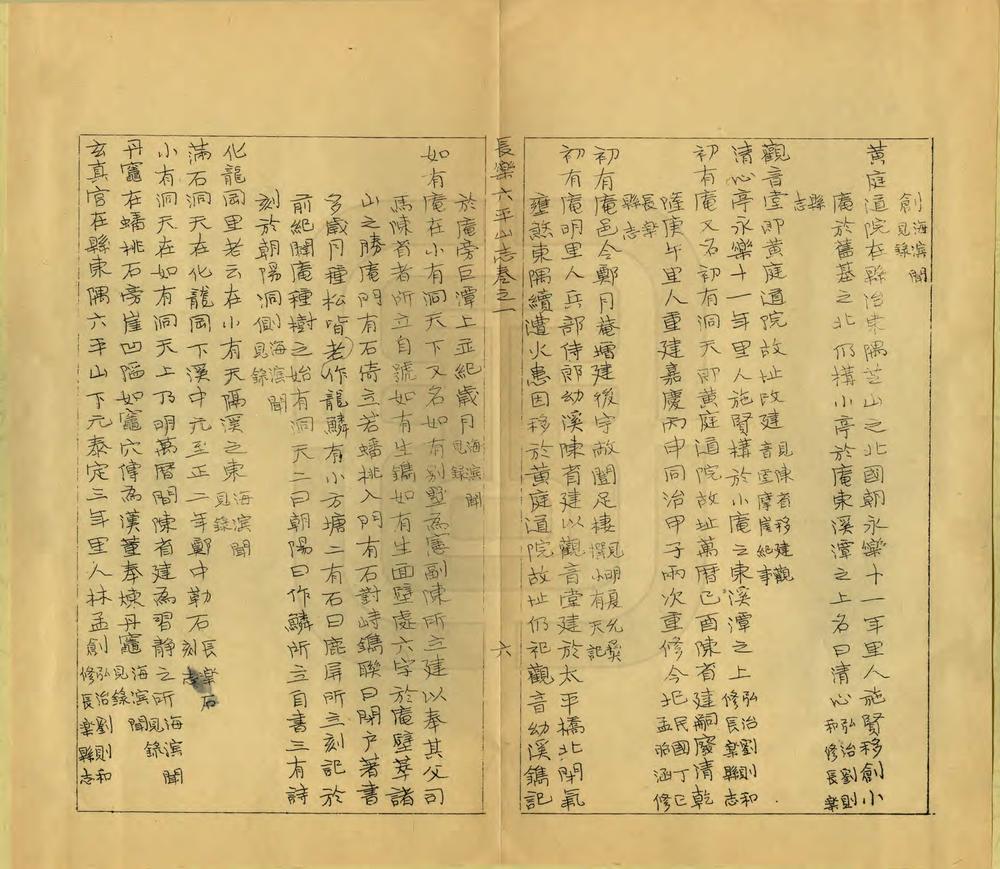 創海濱聞見錄
黃庭道院在縣治東隅芝山之北國朝永樂十一年里人施賢移創小
庵於舊基之北仍構小亭於庵東溪潭之上名曰清心弘治劉則和修長樂
縣志
觀音堂即黃庭道院故址改建見陳省移建觀音堂摩崖紀事
清心亭永樂十一年里人施賢構於小庵之東溪潭之上弘治劉則和修長樂縣志
初有庵又名初有洞天即黃庭道院故址萬曆己酉陳省建嗣廢清乾
隆庚午里人重建嘉慶丙申同治甲子兩次重修今北孟昭涵修民國丁巳
長樂縣志
初有庵邑令鄭月菴增建後宇敞闓足棲見明夏允彝撰小有天記
初有庵明里人兵部侍郎幼溪陳省建以觀音堂建於太平橋北閉氣
壅煞東隅續遭火患因移於黃庭道院故址仍祀觀音幼溪鐫記
長樂六平山志卷之一
六
於庵旁巨潭上並紀歲月海濱聞見錄
如有庵在小有洞天下又名如有別墅為憲副陳所立建以奉其父司
馬陳省者所立自號如有生鐫如有生面壁處六字於庵壁萃諸
山之勝庵門有石倚立若蟠桃入門有石對峙鐫聯曰閉戶著書
多歲月種松皆老作龍鱗有小方塘二有石曰鹿屏所立刻記於
前紀闢庵種樹之始有洞天二曰朝陽曰作鱗所立自書三有詩
刻於朝陽洞側海濱聞見錄
化龍岡里老云在小有天隔溪之東海濱聞見錄
滿石洞天在化龍岡下溪中元至正二年鄭中勒石長樂石刻志
小有洞天在如有洞天上乃明萬曆間陳省建為習靜之所海濱聞見錄
丹竈在蟠桃石旁崖凹陷如竈穴傳為漢董奉煉丹竈海濱聞見錄
玄真宮在縣東隅六平山下元泰定三年里人林孟創弘治劉則和修長樂縣志